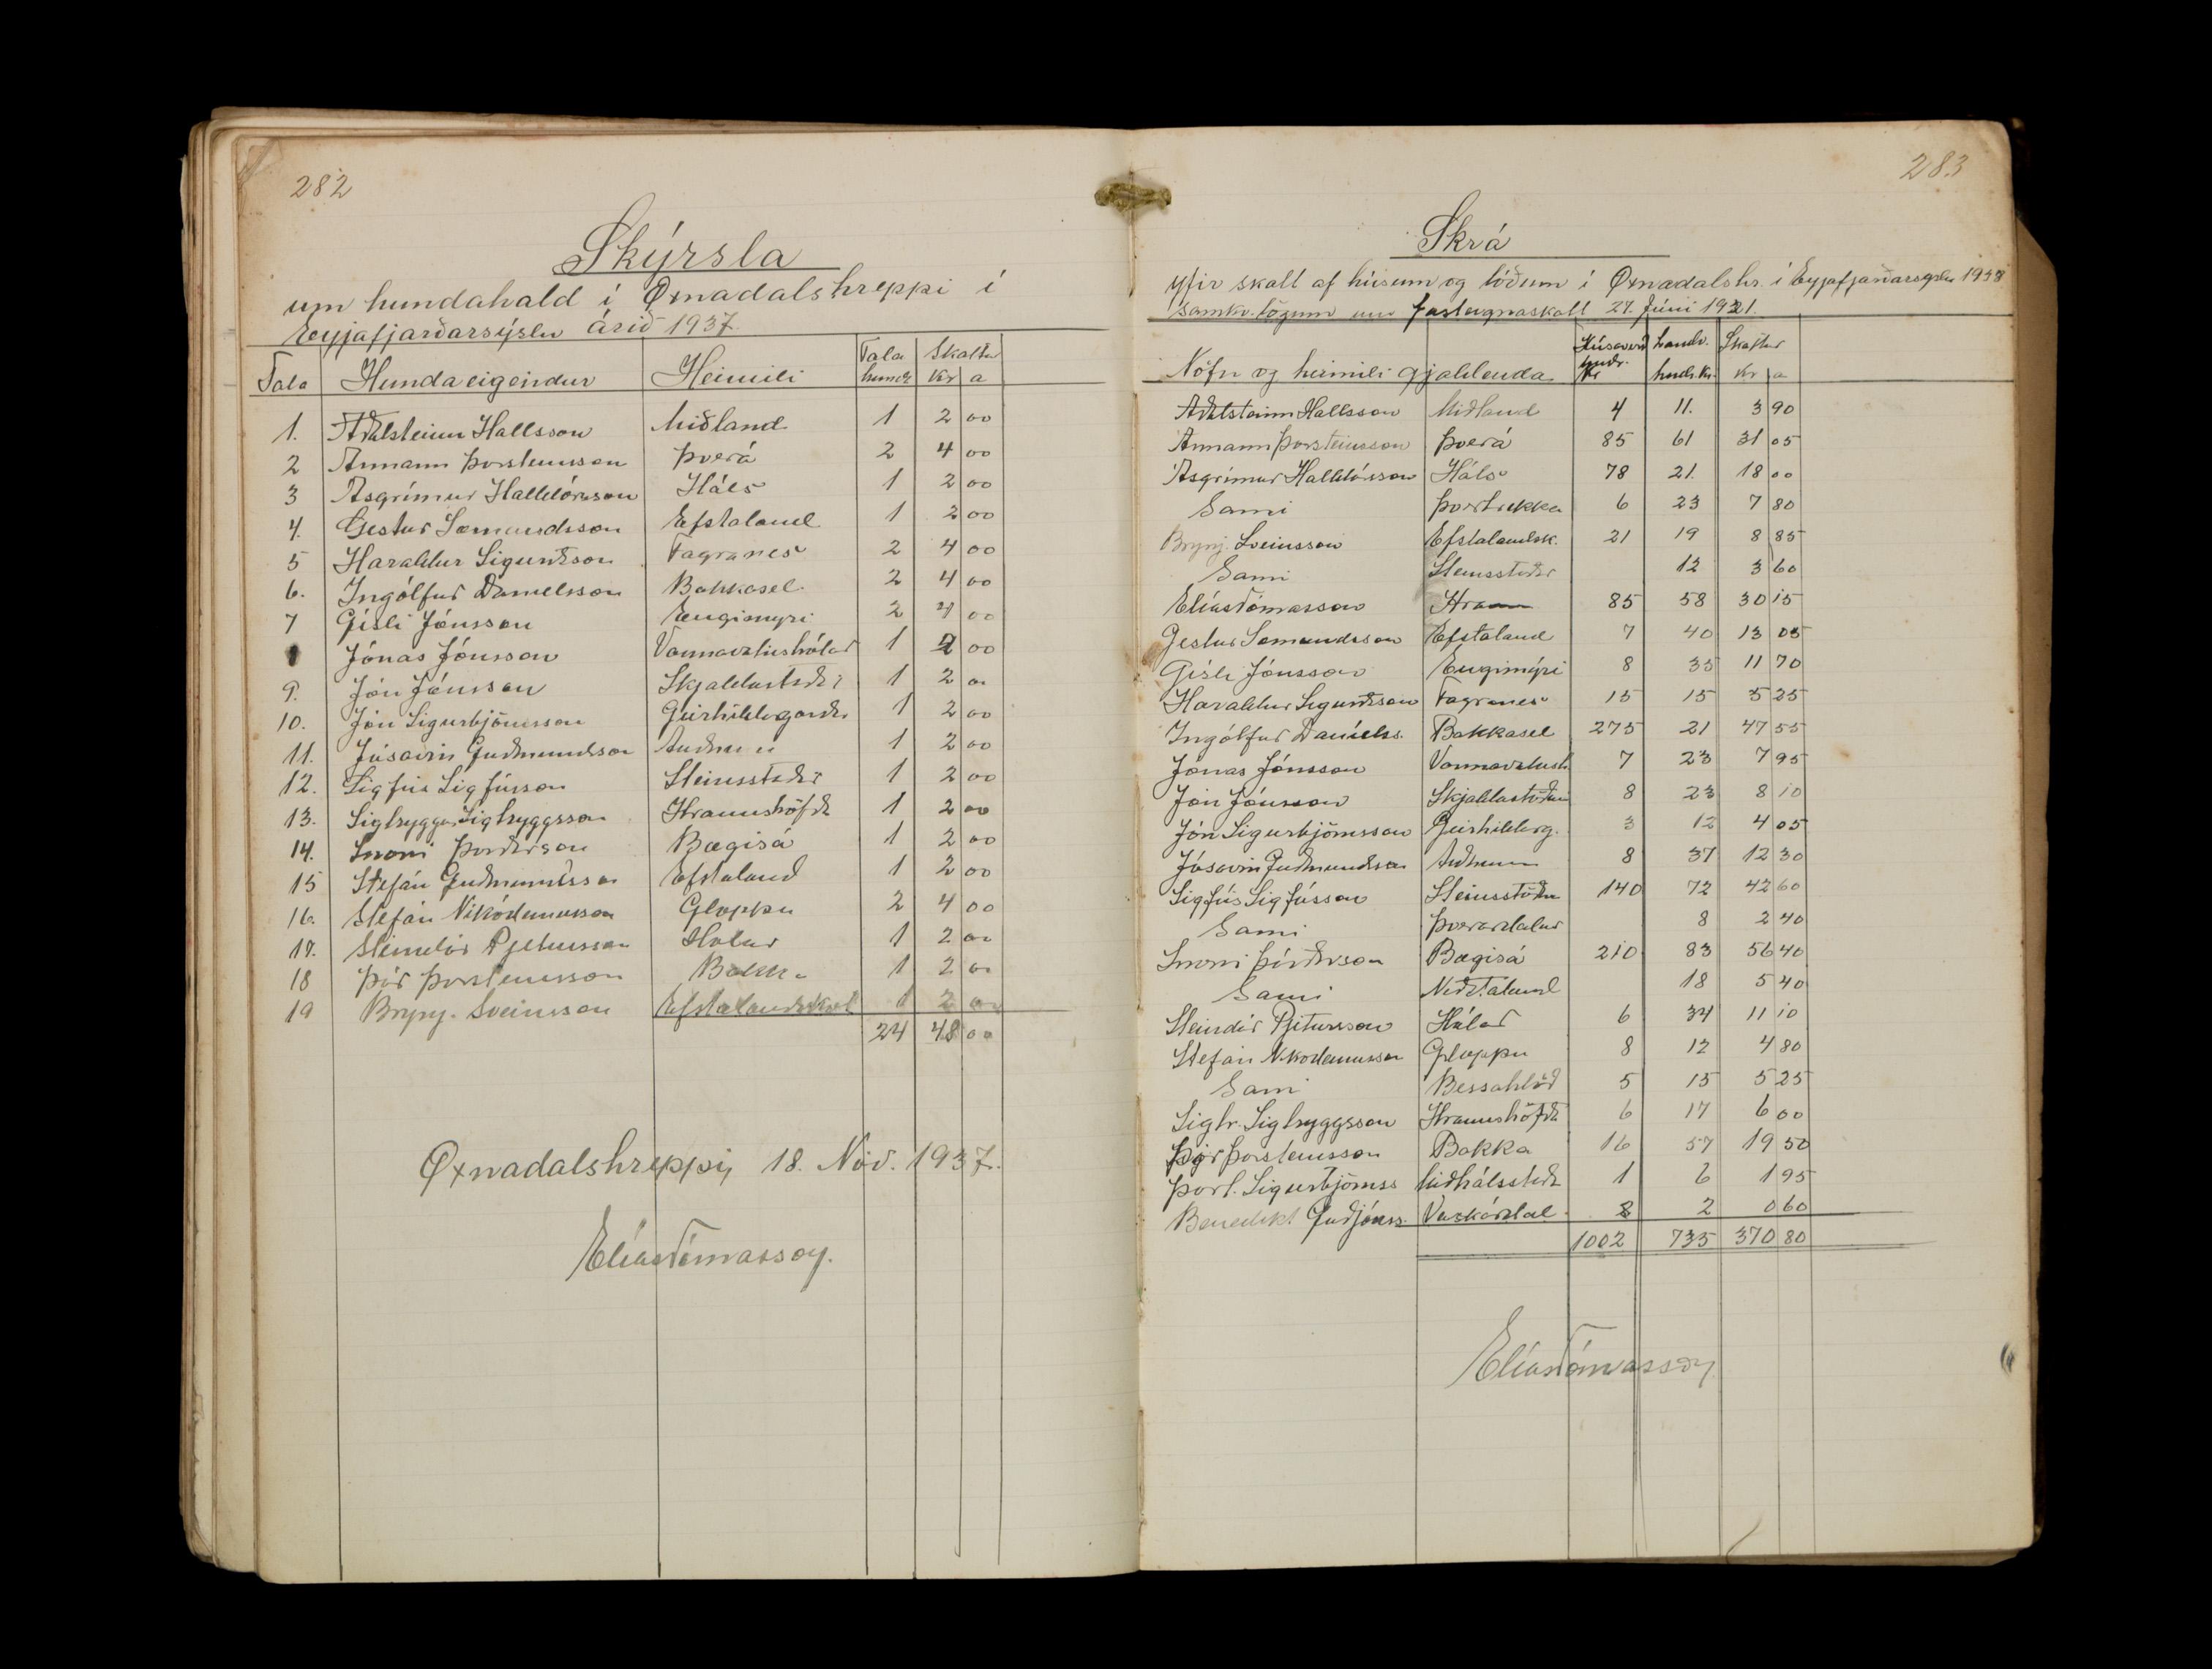 282
Skýrsla
um hundahald í Öxnadalshreppi í
Eyjafjarðarsýslu árið 1937.
Tala Hundaeigendur Heimili Tala hunda Skattur Kr a
1. Aðalsteinn Hallsson Miðland 1 2 00
2 Ármann Þorsteinsson Þverá 2 4 00
3 Ásgrímur Halldórsson Háls 1 2 00
4. Gestur Sæmundsson Efstaland 1 2 00
5 Haraldur Sigurðsson Fagranes 2 4 00
6. Ingólfur Daníelsson Bakkasel 2 4 00
7 Gísli Jónsson Engimýri 2 4 00
Jónas Jónsson Vannavatushólar 1 2 00
9. Jón Jónsson Skjaldastaðir 1 2 00
10. Jón Sigurbjörnsson Geirhildargarðar 1 2 00
11. Jósavin Guðmundsson Auðnum 1 2 00
12. Sigfús Sigfússon Steinsstaðir 1 2 00
13. Sigtryggur Sigtryggsson Hraunshöfða 1 2 00
14. Snorri Þórðarson Bægisá 1 2 00
15 Stefán Guðmundsson Efstaland 1 2 00
16. Stefán Nikódemusson Gloppu 2 4 00
17. Steindór Pjetursson Hólar 1 2 00
18 Þór Þorsteinsson Bakka 1 2 00
19 Brynj. Sveinsson Efstalandskot 1 2 00
24 48 00
Öxnadalshreppi, 18. Nóv. 1937.
Elías Tómasson.
283
Skrá
yfir skatt af húsum og lóðum í Öxnadalshr. í Eyjafjarðarsýslu 1938
samkv. lögum um fasteignaskatt 27. júní 1921.
Nöfn og heimili gjaldenda Húsaverð hndr. Kr landv. hndr. Kr. Skattur Kr a
Aðalsteinn Hallsson Miðland 4 11. 3 90
Ármann Þorsteinsson Þverá 85 61 31 05
Ásgrímur Halldórsson Háls 78 21. 18 00
Sami Þverbrekka 6 23 7 80
Brynj. Sveinsson Efstalandsk. 21 19 8 85
Sami Steinsstaðir 12 3 60
Elías Tómasson Hraun 85 58 30 15
Gestur Sæmundsson Efstaland 7 40 13 05
Gísli Jónsson Engimýri 8 35 11 70
Haraldur Sigurðsson Fagranes 15 15 5 25
Ingólfur Daníelss. Bakkasel 275 21 47 55
Jónas Jónsson Vannavatush. 7 23 7 95
Jón Jónsson Skjaldastöðum 8 23 8 10
Jón Sigurbjörnsson Geirhildarg. 3 12 4 05
Jósavin Guðmundsson Auðnum 8 37 12 30
Sigfús Sigfússon Steinsstöðum 140 72 42 60
Sami Þverárdalur 8 2 40
Snorri Þórðarson Bægisá 210 83 56 40
Sami Neðstaland 18 5 40
Steindór Pjetursson Hólar 6 34 11 10
Stefán Nikodemusson Gloppu 8 12 4 80
Sami Bessahlöð 5 15 5 25
Sigtr. Sigtryggsson Hraunshöfða 6 17 6 00
Þór Þorsteinsson Bakka 16 57 19 50
Þorl. Sigurbjörnss Miðhálsstaða 1 6 1 95
Benedikt Guðjónss. Vaskárdal 8 2 0 60
1002 735 370 80
Elías Tómasson